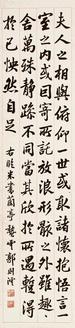 夫人之相與俯仰一世或取諸懷抱悟言一
室之內或因寄所託放浪形骸之外雖趣
舍萬殊靜躁不同當其欣於所遇暫得
於己快然 右臨米書蘭亭 蟄雲郭則澐